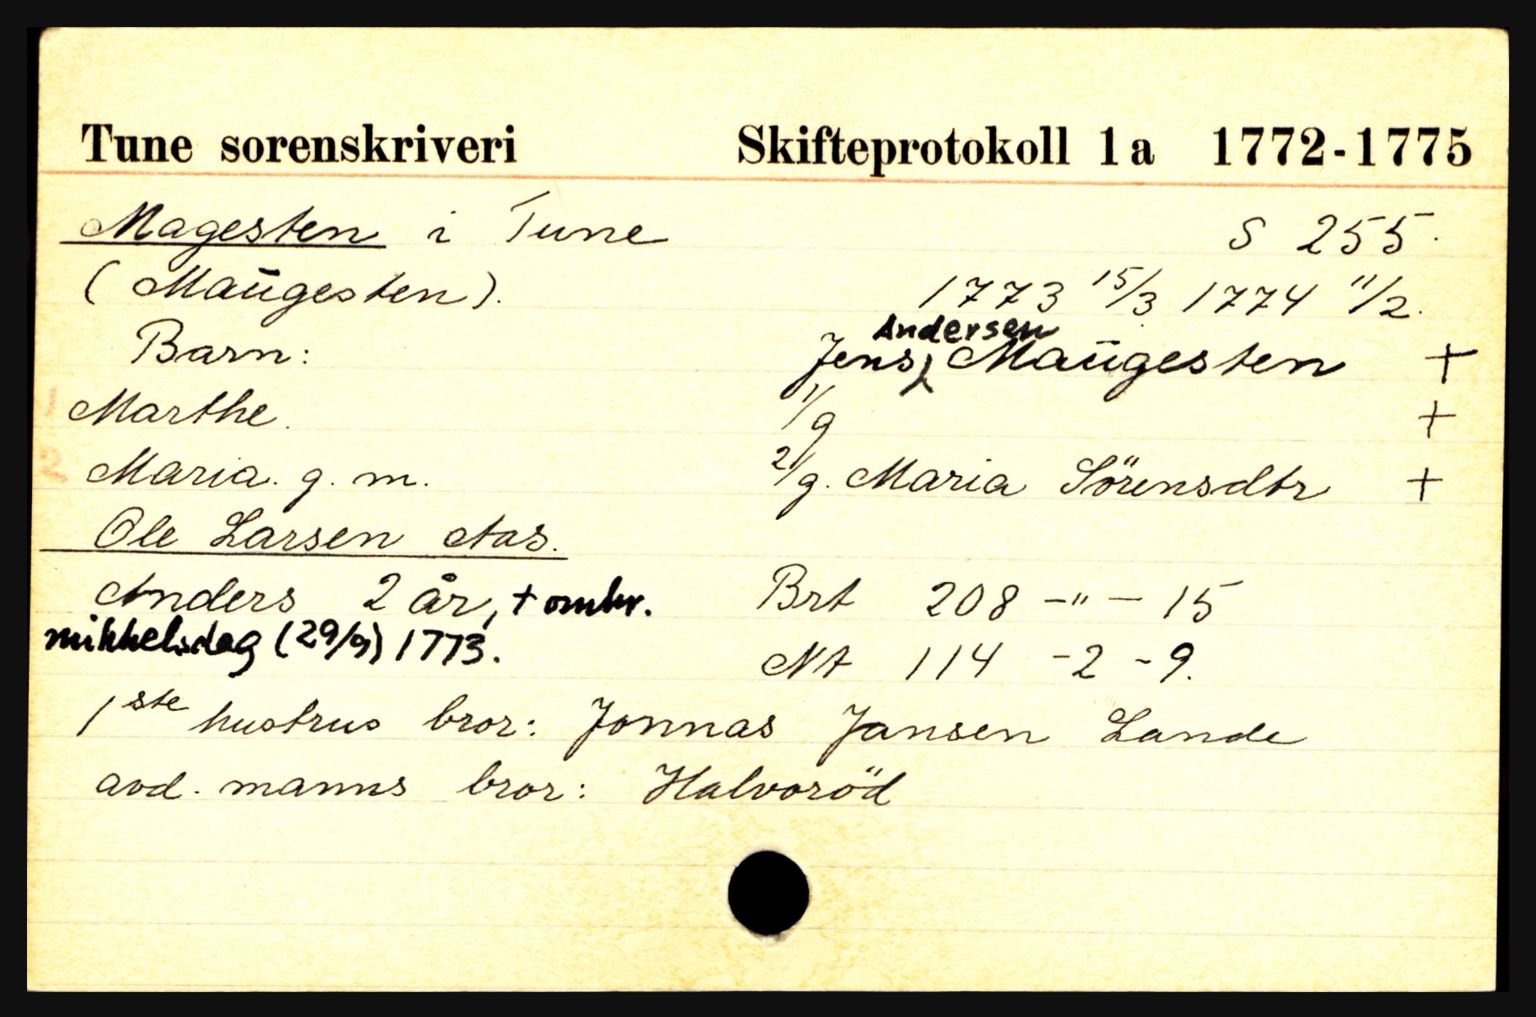 Tune sorenskriveri Skifteprotokoll 1a 1772-1775
Magesten i Tune S 255.
(Maŭgesten). 1773 15/3 1774 11/2.
Andersen
Barn: Jens Maŭgesten +
Marthe. 1/g +
Maria. g. m. 2/g. Maria Sörensdtr +
Ole Larsen Aas.
Anders 2 år, + omkr. Brt 208 -"- 15
mikkelsdag (29/9) 1773. Nt 114 -2 -9.
1ste hustrus bror: Jonnas Jansen Lande
avd. manns bror: Halvoröd